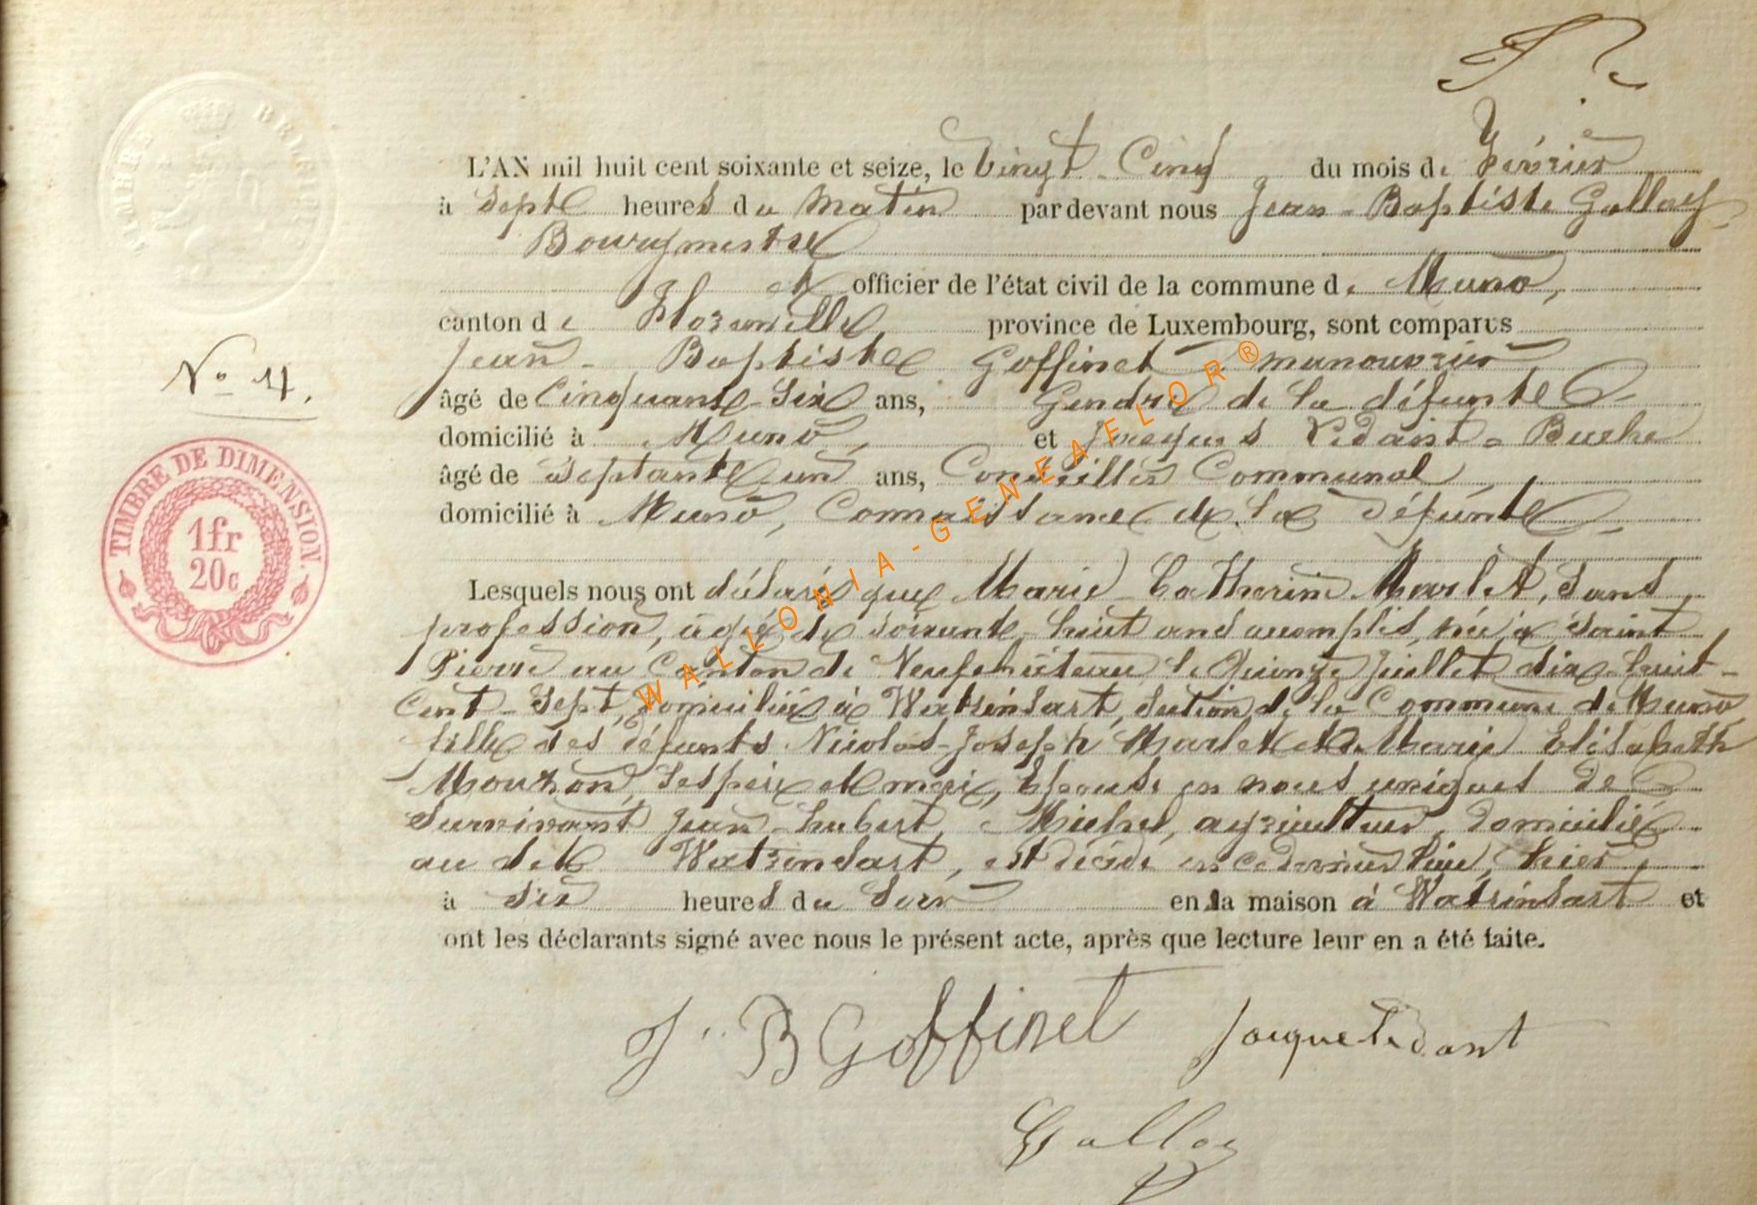 L'AN mil huit cent soixante et seize, le Vingt-Cinq du mois de Février
à Sept heures du Matin pardevant nous Jean-Baptiste Galloy
Bourgmestre
officier de l'état civil de la commune de Muno,
canton de Florenville, province de Luxembourg, sont comparus
Jean-Baptiste Goffinet manouvrier
Nº 14.
âgé de Cinquante-Six ans, Gendre de la défunte
domicilié à Muno, et Jacques Ledant-Buche
âgé de Septante-un ans, Conseiller Communal
domicilié à Muno, Connaissance de la Défunte
Lesquels nous ont déclaré que Marie-Catherine Marlet, Sans
profession, âgée de soixante-huit ans accomplis, née à Saint
Pierre au Canton de Neufchâteau le Quinze Juillet dix-huit-
Cent-Sept, domiciliée à Watrinsart, Section de la Commune de Muno
fille des défunts Nicolas-Joseph Marlet et de Marie Elisabeth
Mouzon, Ses père et mère, Epouse en noces uniques de
Survivant Jean-hubert Michel, agriculteur, Domicilié
au dit Watrinsart, est décédé en ce dernier lieu, hier,
à Six heures du Soir en la maison à Watrinsart et
ont les déclarants signé avec nous le présent acte, après que lecture leur en a été faite.
J. B Goffinet Jacque Ledant
Galloy
TIMBRE DE DIMENSION.
1fr
20c
WALLONIA-GENEAFLOR®